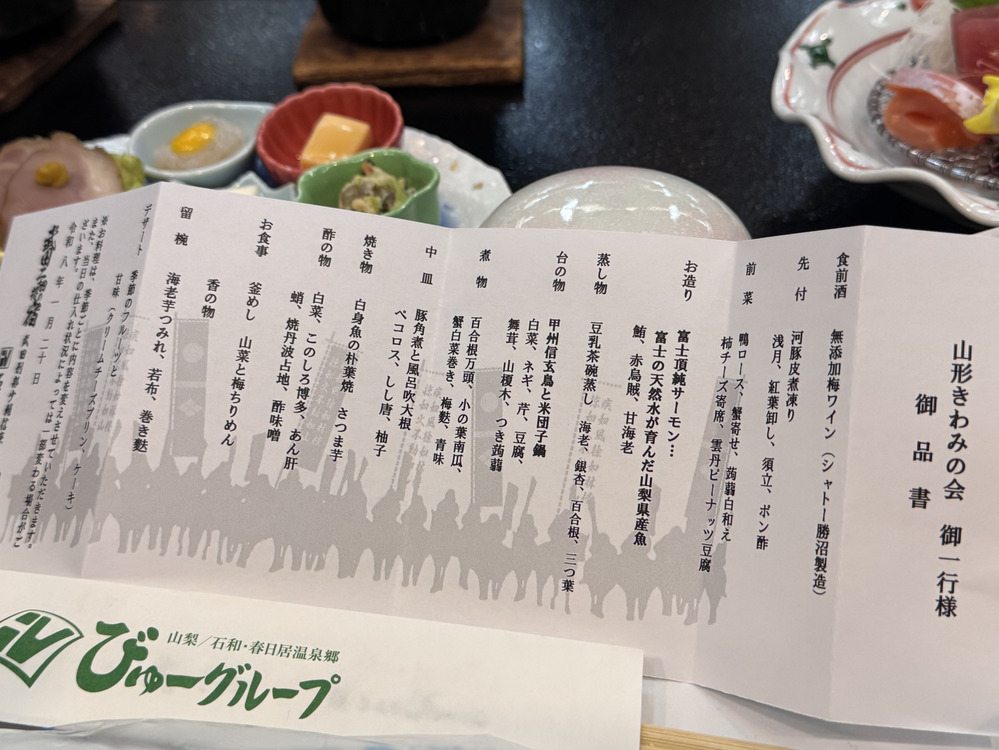 山形きわみの会　御一行様
御品書
食前酒　無添加梅ワイン（シャトー勝沼製造）
先付　河豚皮煮凍り
浅月、紅葉卸し、須立、ポン酢
前菜　鴨ロース、蟹寄せ、蒟蒻白和え
柿チーズ寄席、雲丹ピーナッツ豆腐
お造り　富士頂純サーモン…
富士の天然水が育んだ山梨県産魚
鮪、赤烏賊、甘海老
蒸し物　豆乳茶碗蒸し　海老、銀杏、百合根、三つ葉
台の物　甲州信玄鳥と米団子鍋
白菜、ネギ、芹、豆腐、
舞茸、山榎木、つき蒟蒻
煮物　百合根万頭、小の葉南瓜、
蟹白菜巻き、梅麩、青味
中皿　豚角煮と風呂吹大根
ペコロス、しし唐、柚子
焼き物　白身魚の朴葉焼　さつま芋
酢の物　白菜、このしろ博多、あん肝
蛸、焼丹波占地、酢味噌
お食事　釜めし　山菜と梅ちりめん
香の物
留椀　海老芋つみれ、若布、巻き麩
デザート　季節のフルーツと
甘味（クリームチーズプリン、ケーキ）
尚お料理は、季節ごとに内容を変えさせていただきます。
また、当日の仕入れ状況によっては一部変わる場合がご
ざいます。
令和八年　一月二十日
山梨／石和・春日居温泉郷
びゅーグループ